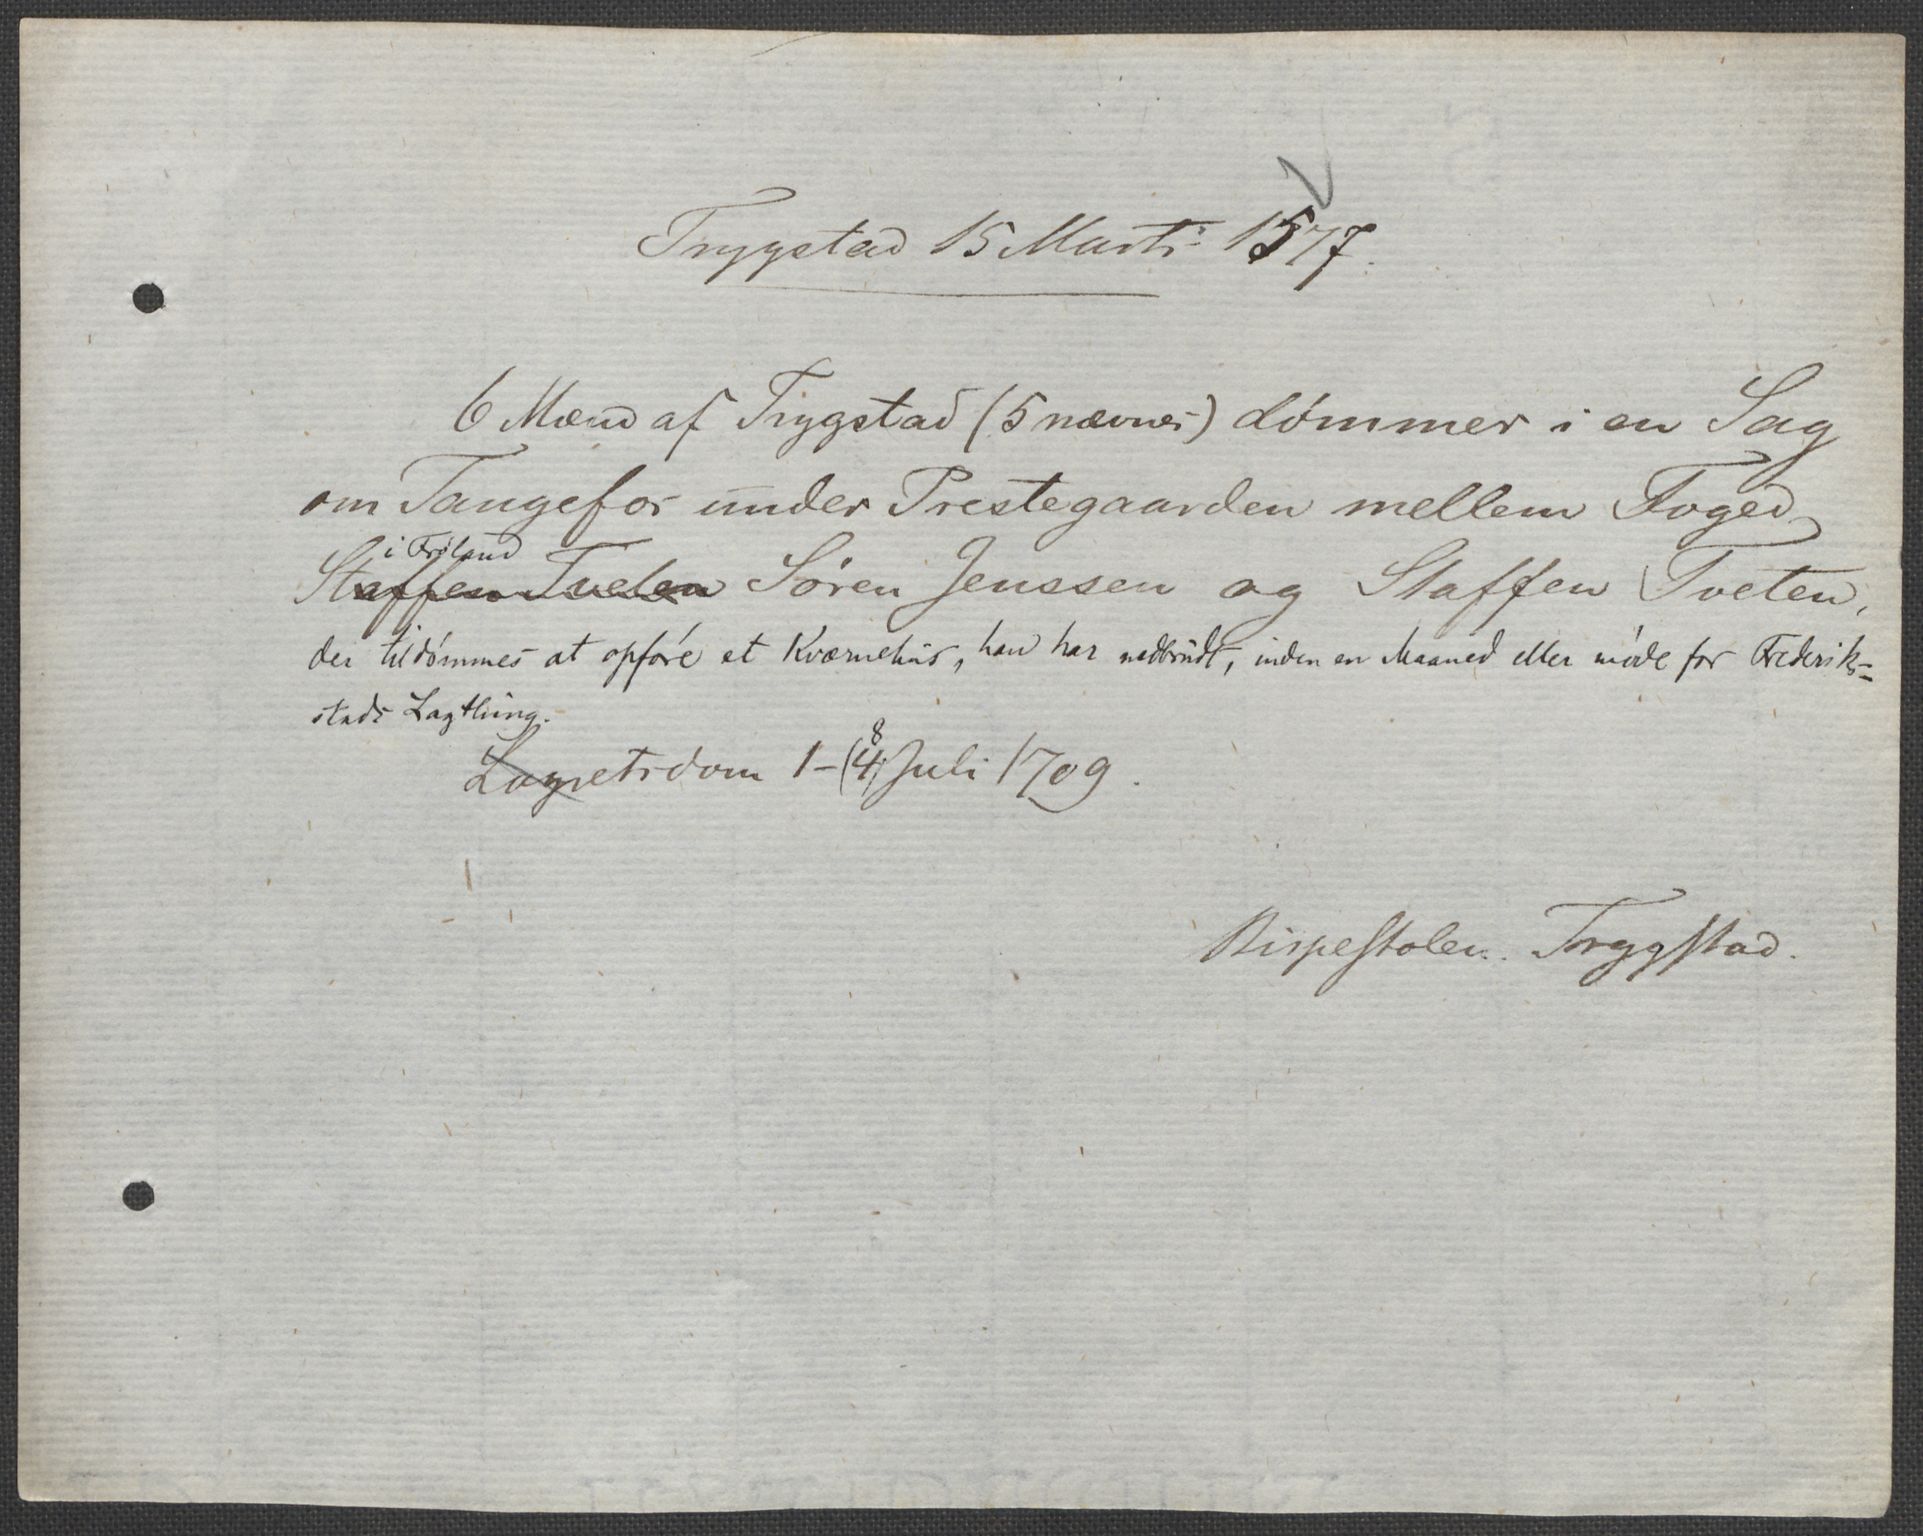 Trygstad 15 Marti 1577.
6 Mænd af Trygstad (5 nævnes) dømmer i en Sag
om Tangefos under Prestegaarden mellem Foged
i Frøland
Staffen Tveten Søren Jenssen og Staffen Tveten,
der tildømmes at opføre et Kværnehus, han har nedbrudt, inden en Maaned eller møde for Frederik-
stads Lagthing.
Lagretsdom 1-(4) 8 Juli 1709.
Bispestolen. Trygstad.